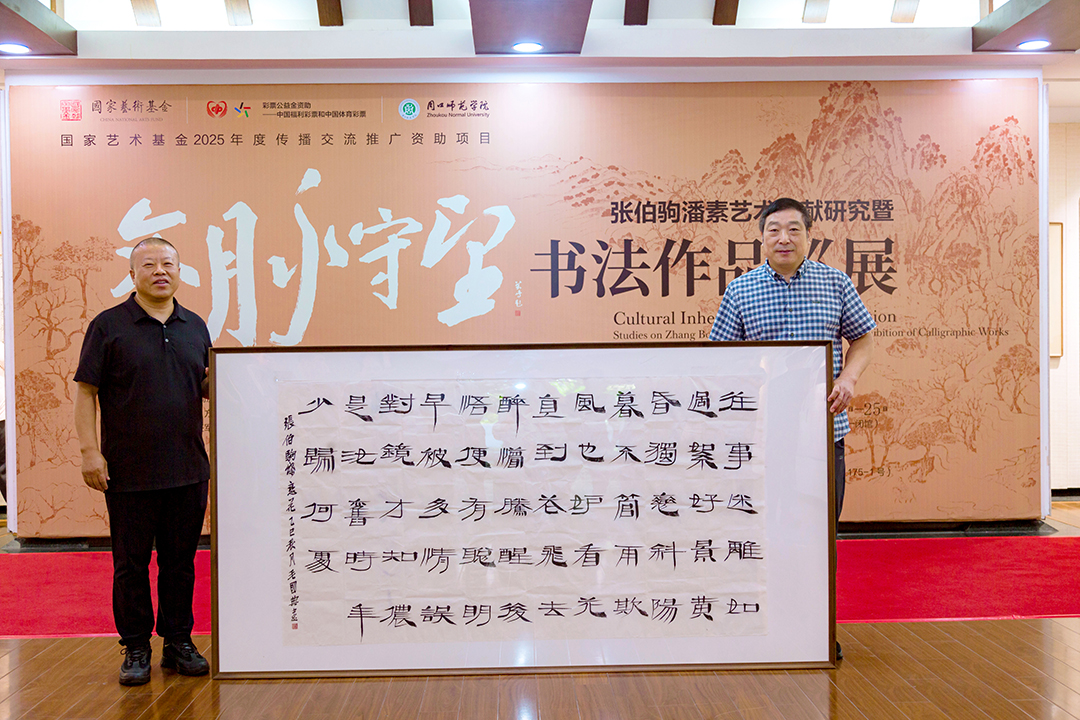 國家藝術基金
CHINA NATIONAL ARTS FUND
彩票公益金资助
——中国福利彩票和中国体育彩票
周口师范学院
Zhoukou Normal University
国家艺术基金2025年度传播交流推广资助项目
守望
张伯驹潘素艺术 献研究暨
书法作品 展
Cultural
Studies on Zhang
of Calligraphic Works
往事迷離如
過絮好景黄
昏獨戀斜陽
暮不 用欺
風也妒看花
直到花飛去
醉懵騰醒後
悟便有聰明
早被多情誤
對鏡才知儂
是 舊時年
少歸何處
張伯駒蝶戀花乙巳 月毛國典書